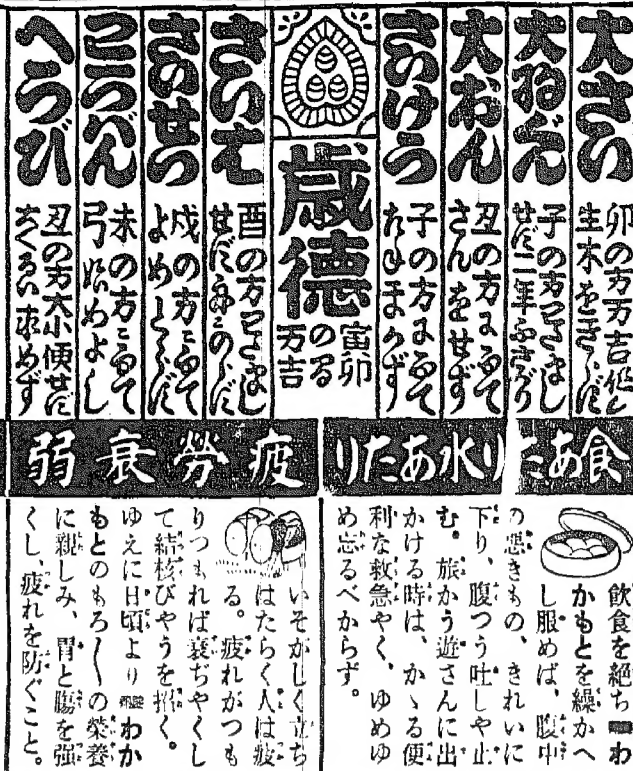 大さい
卯の方万吉但し
生木をきらず
子の方
大おん
丑の方にむきて
さんをせず
さいけう
子の方にむきて
たねまかず
歳徳
寅卯
のる
万吉
さいは
酉の方
さいせつ
戌の方にむきて
よめとらず
未の方にむきて
弓始めよし
へうび
丑の方大小便せず
ちくるい求めず
食あたり水あたり
飲食を絶ちわ
かもとを繰かへ
し服めば、腹中
の悪きもの、きれいに
下り、腹つう吐しや止
む。旅かう遊さんに出
かける時は、かゝる便
利な救急やく、ゆめゆ
め忘るべからず。
疲勞衰弱
いそがしく立ち
はたらく人は疲
る。疲れがつも
りつもれば衰ぢやくし
て結核びやうを招く。
ゆえに日頃よりわか
もとのもろ〳〵の栄養
に親しみ、胃と腸を強
くし、疲れを防ぐこと。